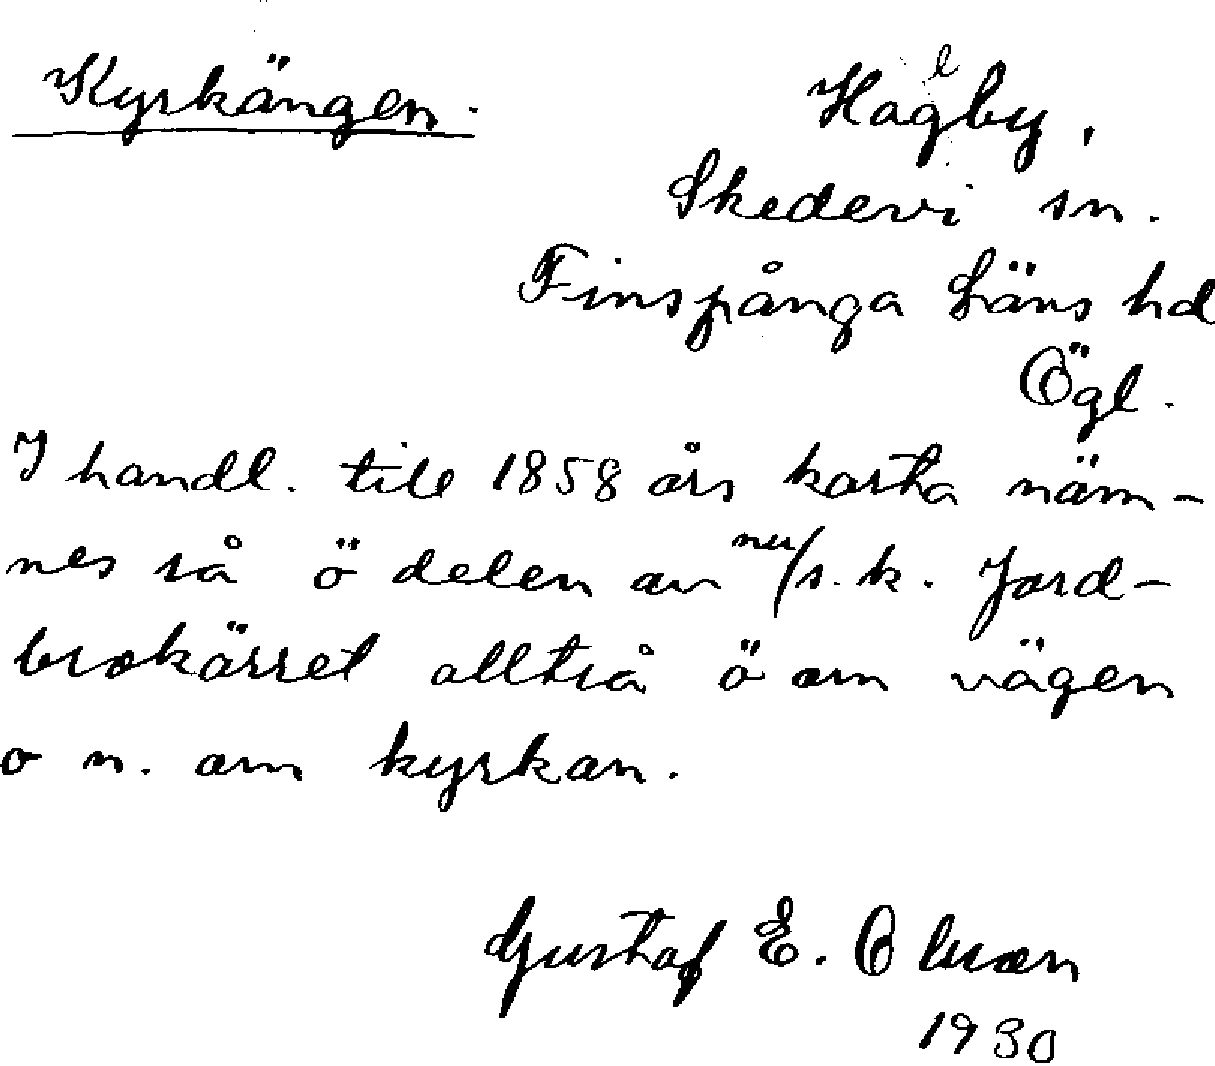 Kyrkängen.
Hagelby,
Skedevi sn.
Finspånga Läns hd
Ögl.
I handl. till 1858 års karta näm-
nes så ö delen av nu/s.k. Jord-
brokärret alltså ö om vägen
o n. om kyrkan.
Gustaf E. Olsson
1930